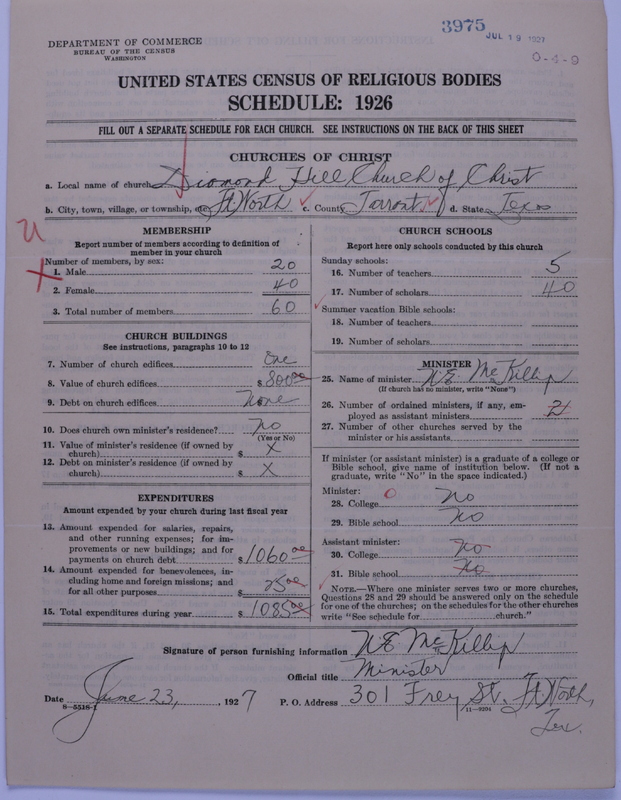 3975
JUL 19 1927
0-4-9
DEPARTMENT OF COMMERCE
BUREAU OF THE CENSUS
WASHINGTON
UNITED STATES CENSUS OF RELIGIOUS BODIES
SCHEDULE: 1926
FILL OUT A SEPARATE SCHEDULE FOR EACH CHURCH. SEE INSTRUCTIONS ON THE BACK OF THIS SHEET
CHURCHES OF CHRIST
a. Local name of church Diamond Hill Church of Christ
b. City, town, village, or township, etc. Ft Worth c. County Tarrant d. State Texas
MEMBERSHIP
Report number of members according to definition of
member in your church
Number of members, by sex:
1. Male 20
2. Female 40
3. Total number of members 60
CHURCH BUILDINGS
See instructions, paragraphs 10 to 12
7. Number of church edifices One
8. Value of church edifices $ 800 00
9. Debt on church edifices None
10. Does church own minister's residence? no
(Yes or No)
11. Value of minister's residence (if owned by
church) $ X
12. Debt on minister's residence (if owned by
church) $ X
EXPENDITURES
Amount expended by your church during last fiscal year
13. Amount expended for salaries, repairs,
and other running expenses; for im-
provements or new buildings; and for
payments on church debt $ 1060 00
14. Amount expended for benevolences, in-
cluding home and foreign missions; and
for all other purposes $ 25 00
15. Total expenditures during year $ 1085 00
CHURCH SCHOOLS
Report here only schools conducted by this church
Sunday schools:
16. Number of teachers 5
17. Number of scholars 40
Summer vacation Bible schools:
18. Number of teachers
19. Number of scholars
MINISTER
25. Name of minister W.E. McKillip
(If church has no minister, write "None")
26. Number of ordained ministers, if any, em-
ployed as assistant ministers 2
27. Number of other churches served by the
minister or his assistants
If minister (or assistant minister) is a graduate of a college or
Bible school, give name of institution below. (If not a
graduate, write "No" in the space indicated.)
Minister:
28. College no
29. Bible school no
Assistant minister:
30. College no
31. Bible school no
NOTE.—Where one minister serves two or more churches,
Questions 28 and 29 should be answered only on the schedule
for one of the churches; on the schedules for the other churches
write "See schedule for church."
Signature of person furnishing information W E McKillip
Official title Minister
Date June 23, 1927 P. O. Address 301 Frey St. Ft Worth,
Tex.
8-5518-1
11-9394